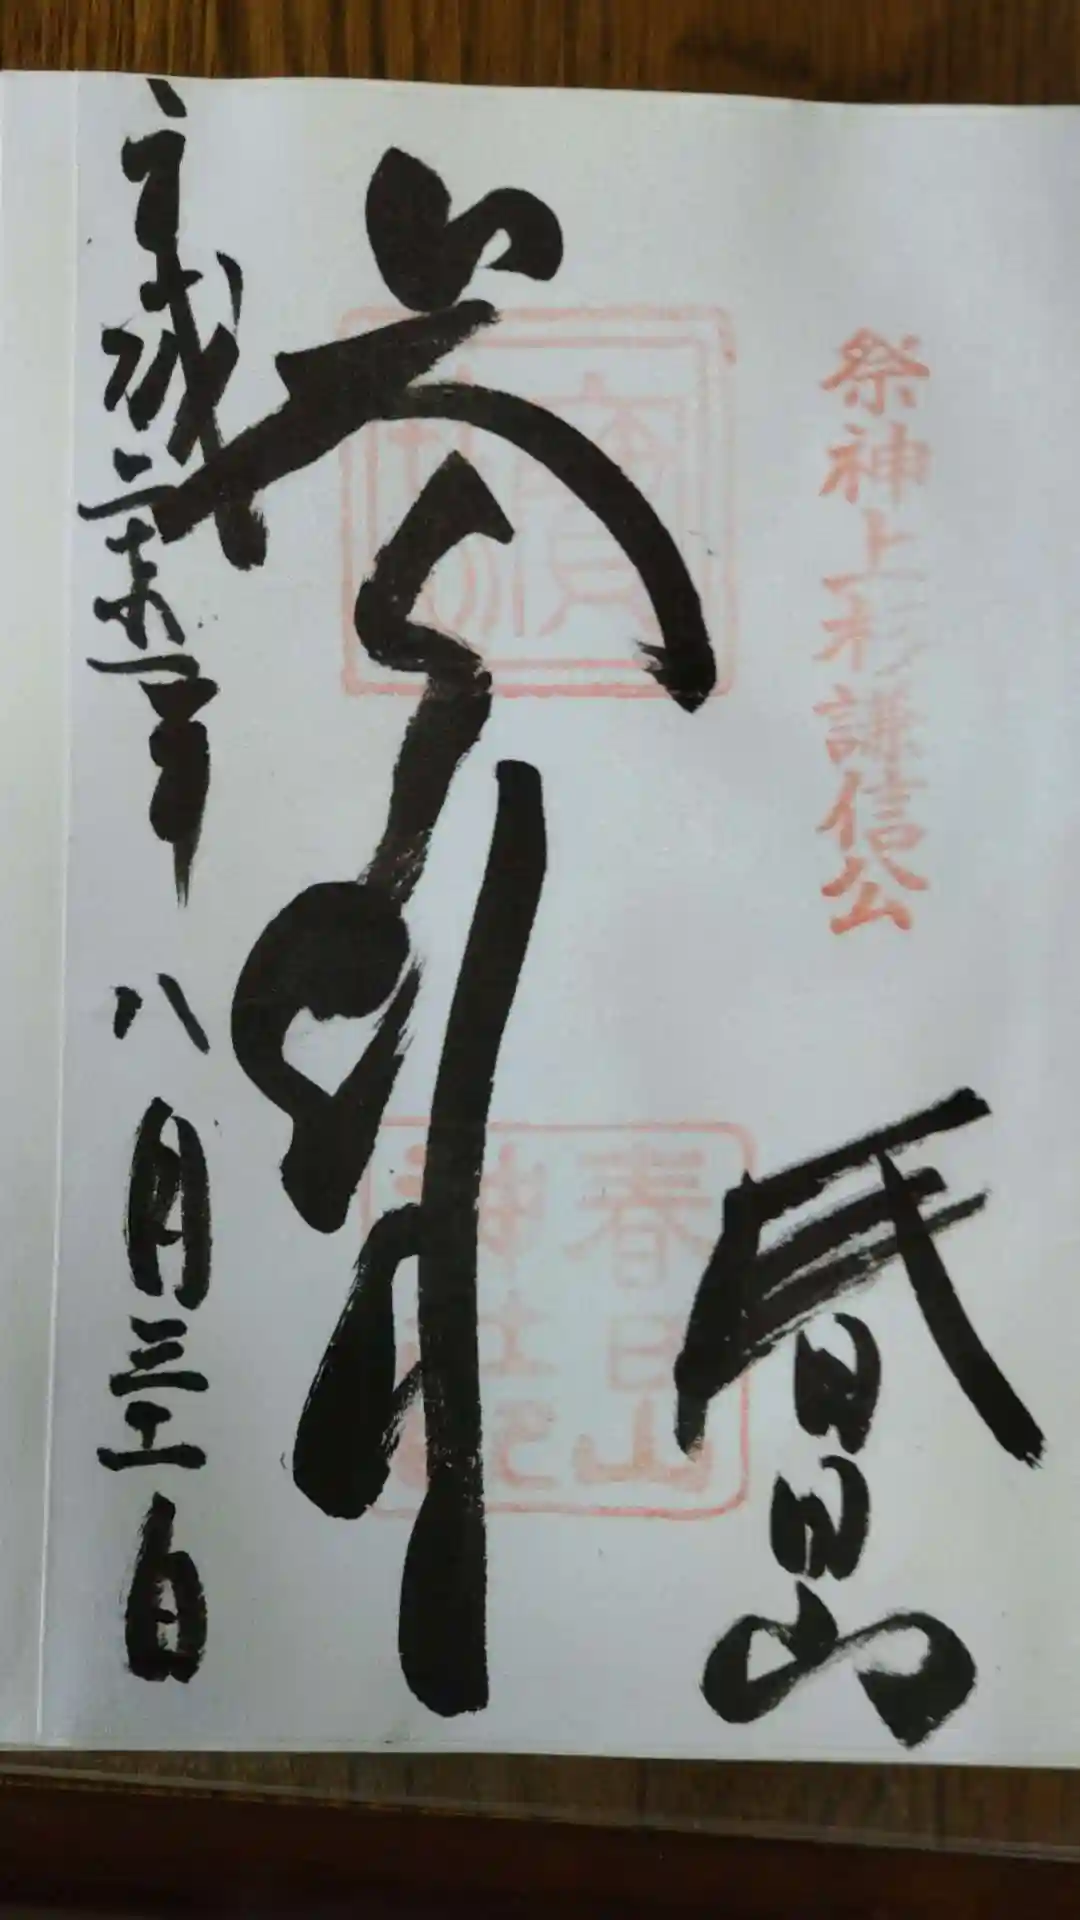 祭神上杉謙信公
春日山
参拝
春日山
神社印
平成
八月三十一日